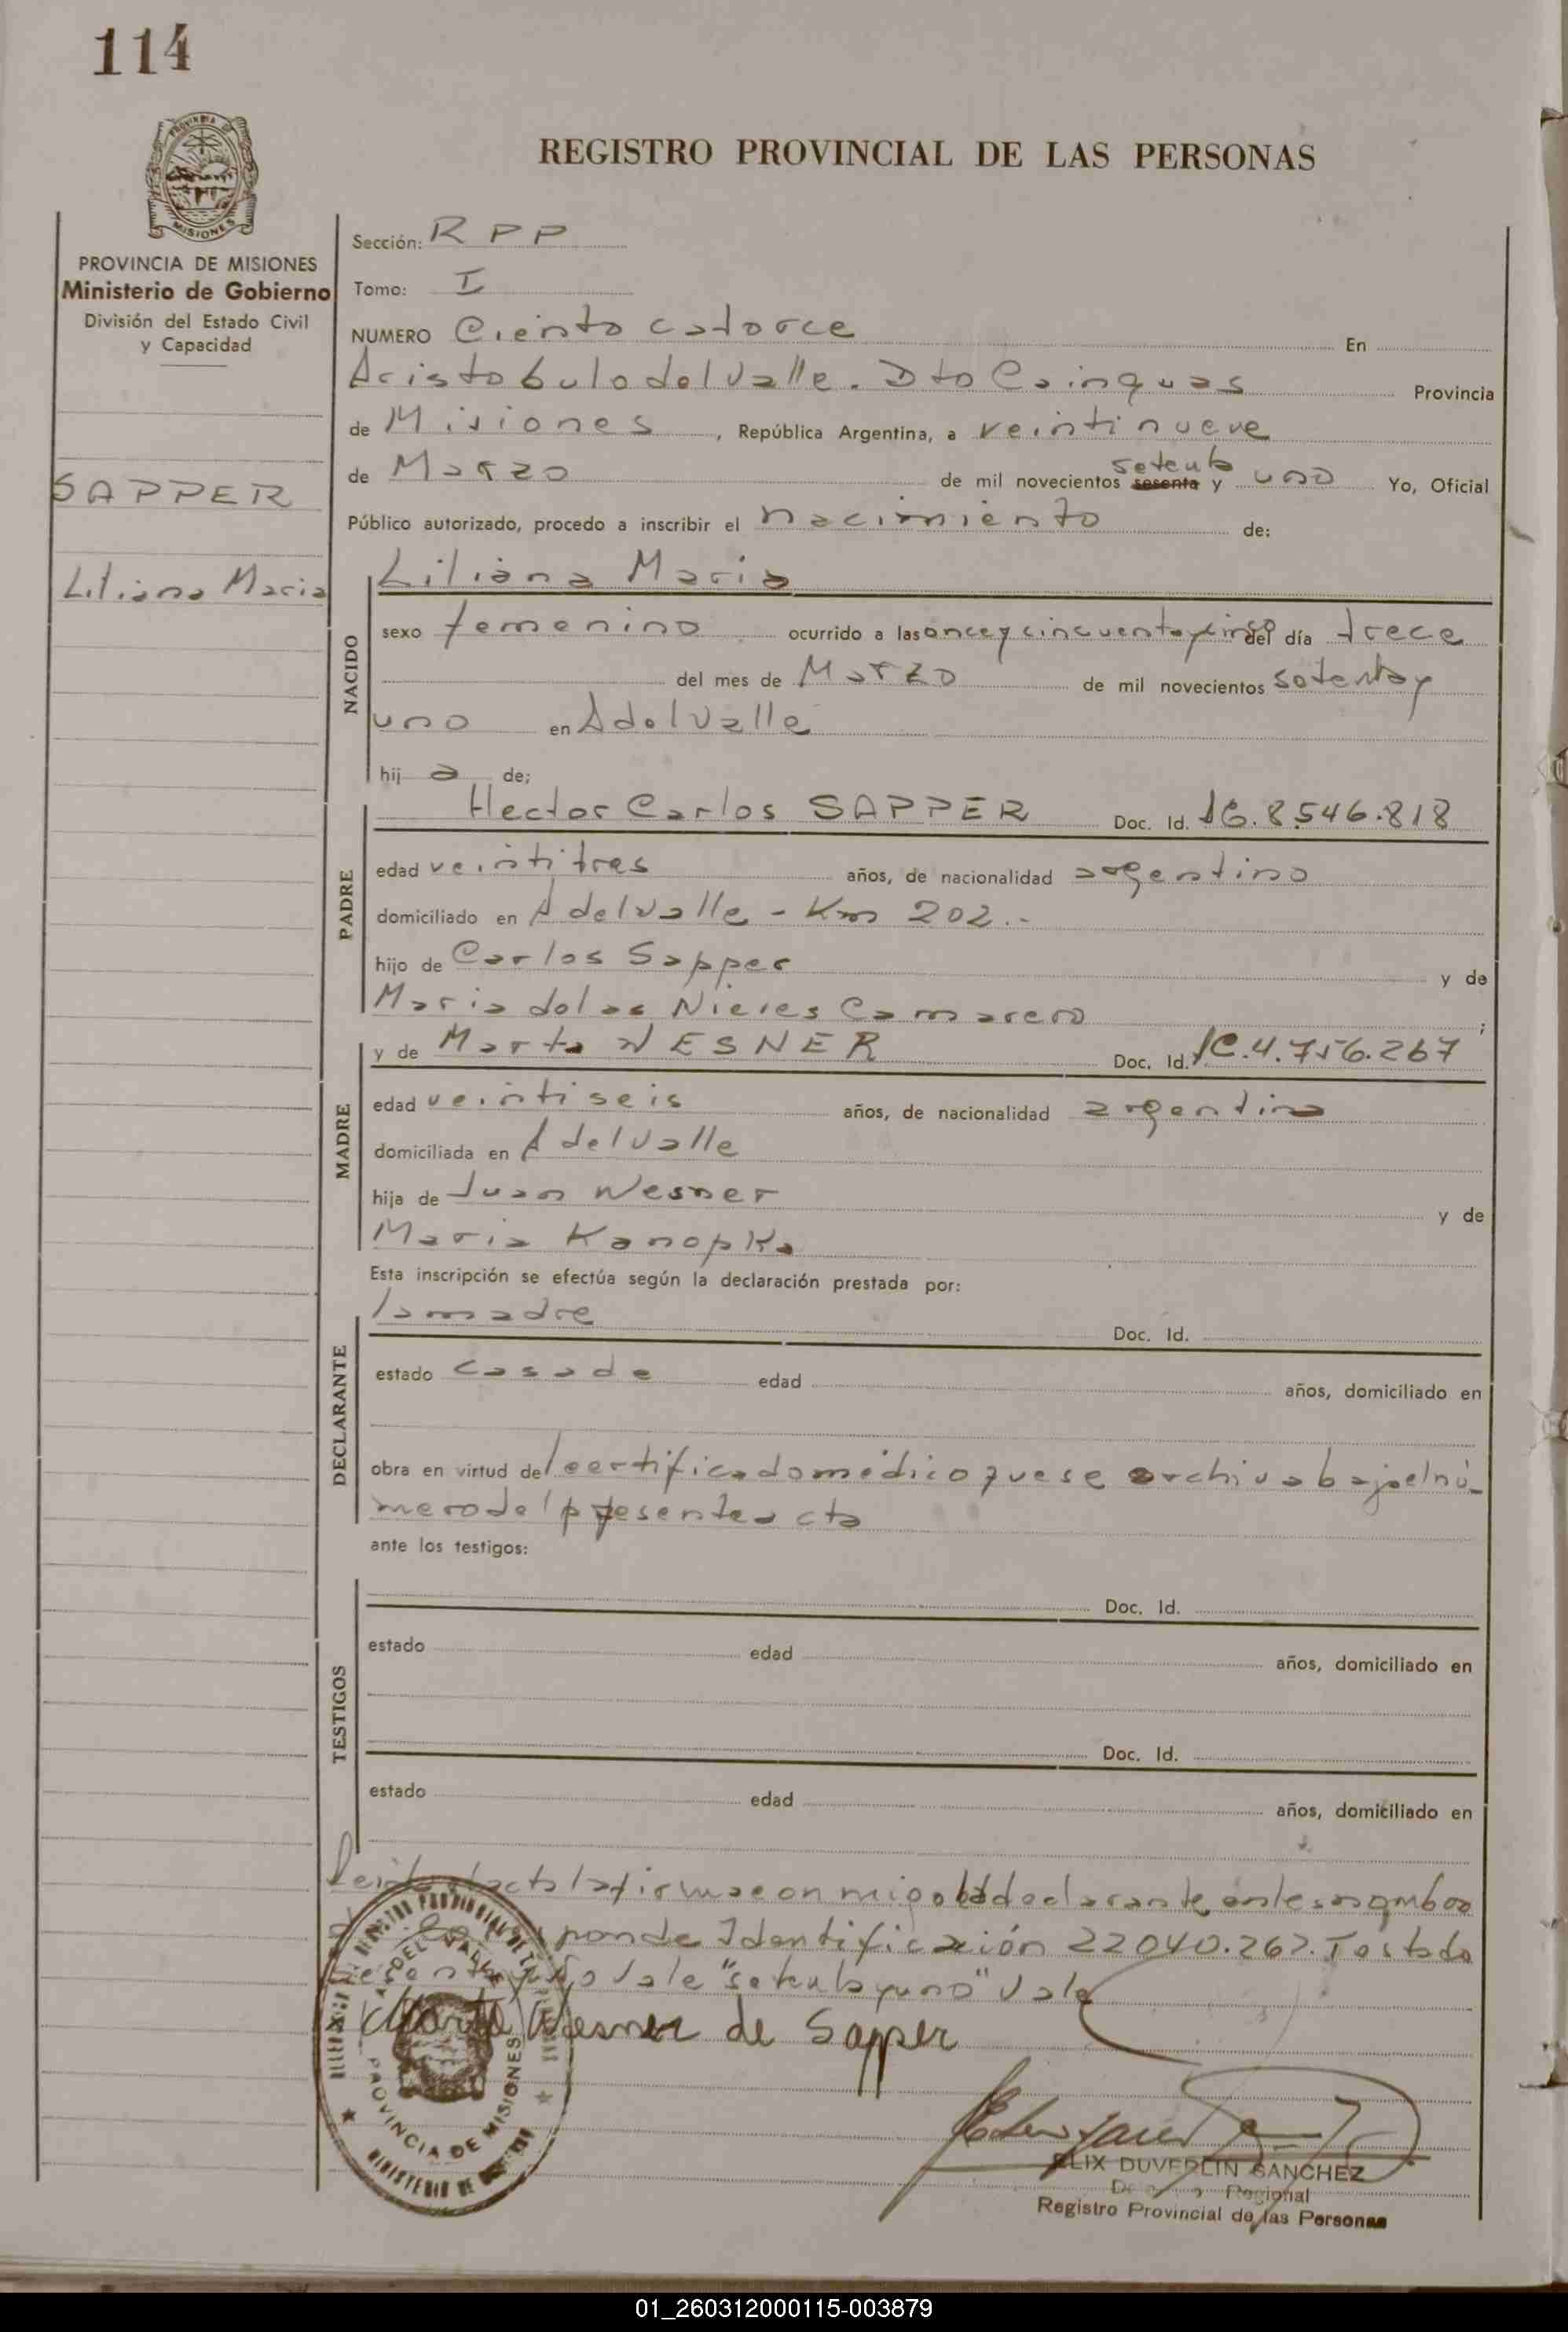 114
REGISTRO PROVINCIAL DE LAS PERSONAS
PROVINCIA DE MISIONES
Ministerio de Gobierno
División del Estado Civil
y Capacidad
SAPPER
Liliana Maria
Sección: R P P
Tomo: I
NUMERO Ciento catorce En
Aristobulo del Valle. Dto Cainguas Provincia
de Misiones, República Argentina, a veintinueve
de Marzo de mil novecientos sesenta setenta y uno Yo, Oficial
Público autorizado, procedo a inscribir el nacimiento de:
NACIDO
Liliana Maria
sexo femenino ocurrido a las once y cincuenta y cinco del día trece
del mes de Marzo de mil novecientos setenta y
uno en A del Valle
hij a de;
PADRE
Hector Carlos SAPPER Doc. Id. 8.546.818
edad veintitres años, de nacionalidad argentino
domiciliado en A del Valle - Km 202.-
hijo de Carlos Sapper y de
Maria de las Nieves Camarero ;
MADRE
y de Marta WESNER Doc. Id. C.4.756.267
edad veintiseis años, de nacionalidad argentina
domiciliada en A del Valle
hija de Juan Wesner y de
Maria Kanopka
Esta inscripción se efectúa según la declaración prestada por:
DECLARANTE
la madre Doc. Id.
estado casada edad años, domiciliado en
obra en virtud del certificado medico que se archiva bajo el nú-
mero del presente acta
ante los testigos:
TESTIGOS
Doc. Id.
estado edad años, domiciliado en
Doc. Id.
estado edad años, domiciliado en
acta la firma con migo la declarante
ponde Identificación 22040.267. Testado
vale "setenta y uno" Vale
Marta Wesner de Sapper
A. DEL VALLE
PROVINCIA DE MISIONES
MINISTERIO DE
ELIX DUVERLIN SANCHEZ
Regional
Registro Provincial de las Personas
01_260312000115-003879